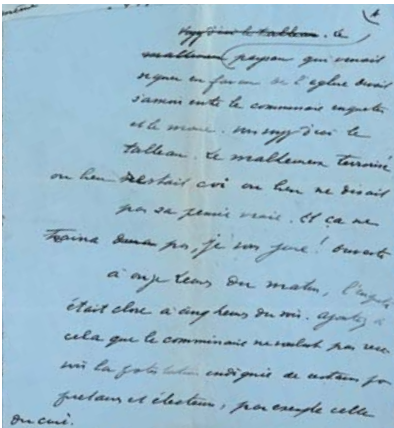 4
même
vous voyez d'ici le tableau. Le
malheureux paysan qui venait
signer en faveur de l'église devait
s'asseoir entre le commissaire enquêteur
et le maire. Vous voyez d'ici le
tableau. Le malheureux terrorisé
ou bien restait coi ou bien ne disait
pas sa pensée vraie. Et ça ne
traina pas, je vous jure! ouverte
à onze heures du matin, l'enquête
était close à cinq heures du soir. ajoutez à
cela que le commissaire ne voulut pas rece
voir la protestation indignée de certains
et électeurs, par exemple celle
du curé.